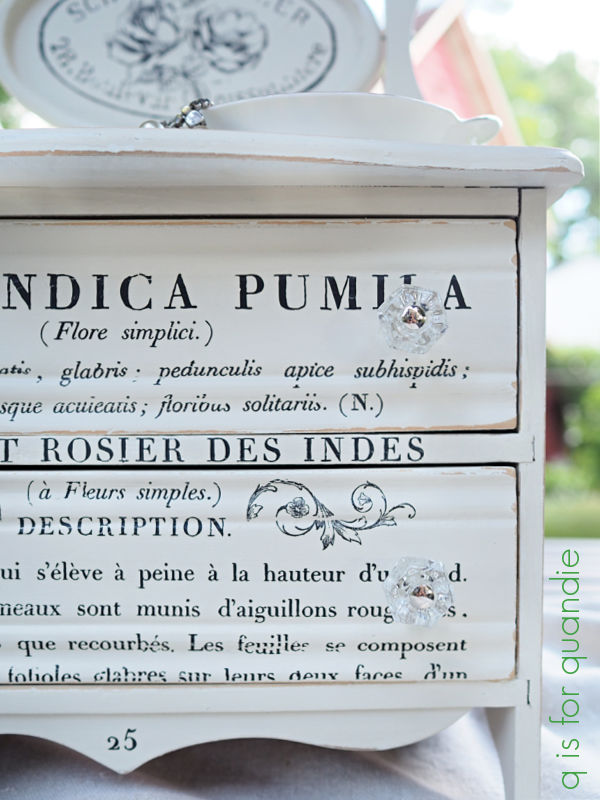 NDICA PUMILA
(Flore simplici.)
glabris; pedunculis apice subhispidis;
sque acuieatis; floribus solitariis. (N.)
T ROSIER DES INDES
(à Fleurs simples.)
DESCRIPTION.
ui s'élève à peine à la hauteur d'u d.
meaux sont munis d'aiguillons roug s.
que recourbés. Les feuilles se composent
folioles glabres sur leurs deux faces, d'un
25
q is for quandie